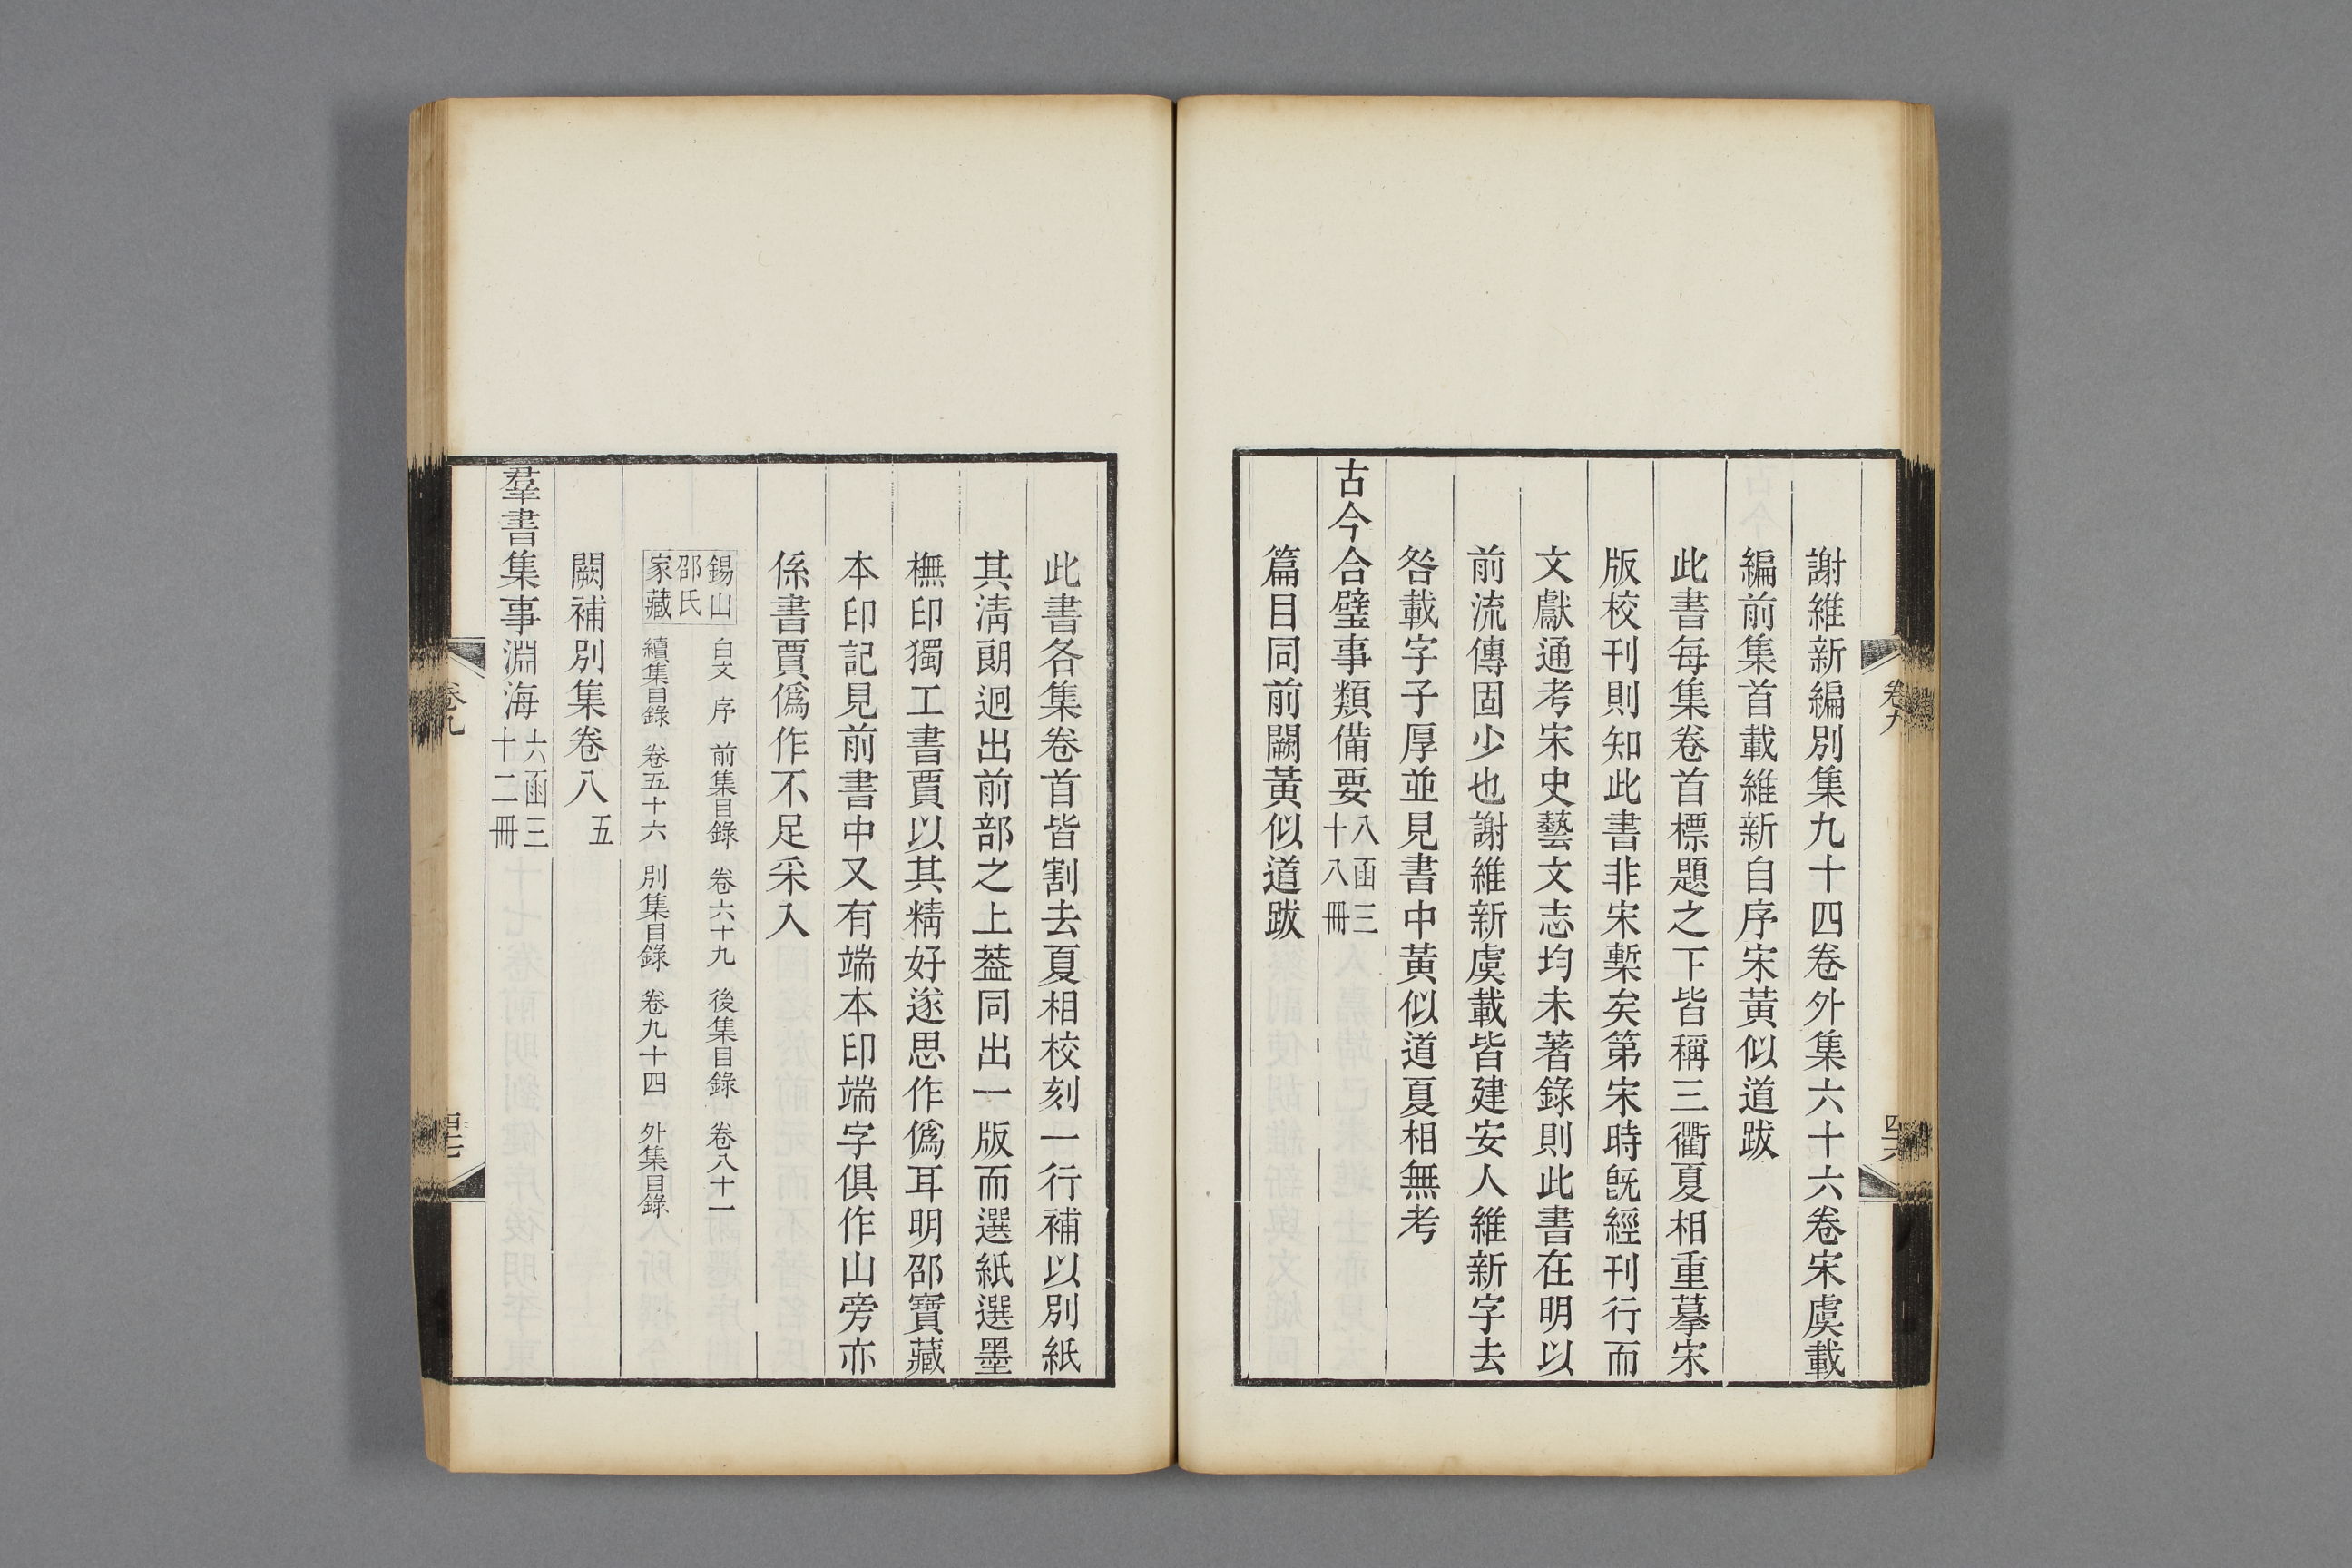 謝維新編別集九十四卷外集六十六卷宋虞載
編前集首載維新自序宋黃似道跋
此書每集卷首標題之下皆稱三衢夏相重摹宋
版校刊則知此書非宋槧矣第宋時旣經刊行而
文獻通考宋史藝文志均未著錄則此書在明以
前流傳固少也謝維新虞載皆建安人維新字去
咎載字子厚並見書中黃似道夏相無考
古今合璧事類備要八函三十八冊
篇目同前闕黃似道跋
卷九
四十六
此書各集卷首皆割去夏相校刻一行補以別紙
其淸朗迥出前部之上蓋同出一版而選紙選墨
橅印獨工書賈以其精好遂思作僞耳明邵寶藏
本印記見前書中又有端本印端字俱作山旁亦
係書賈僞作不足采入
錫山邵氏家藏 白文 序 前集目錄 卷六十九 後集目錄 卷八十一
續集目錄 卷五十六 別集目錄 卷九十四 外集目錄
闕補別集卷八 五
羣書集事淵海六函三十二冊
卷九
四十七